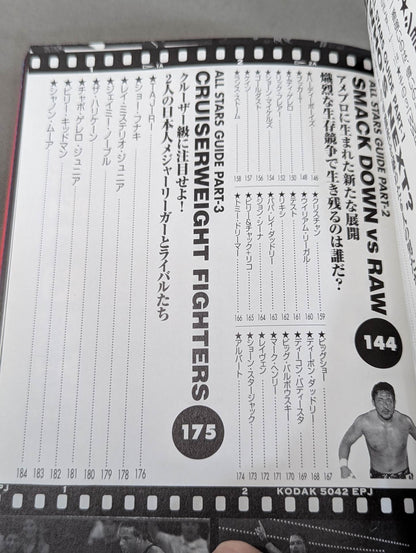 ALL STARS GUIDE PART-2
SMACK DOWN vs RAW
アメプロに生まれた新たな展開
熾烈な生存競争で生き残るのは誰だ?
144
★ハーディー・ボーイズ 146
★ブッカーT 148
★エディ・ゲレロ
★ショーン・マイケルズ 154
★ゴールダスト 156
★ケイン 157
★ランス・ストーム 158
★クリスチャン 159
★ウイリアム・リーガル 160
★テスト 161
★リキシ 162
★ババ・レイ・ダッドリー 163
★ジョン・シーナ 164
★ビリー&チャック+リコ 165
★トミー・ドリーマー 166
★ビッグショー 167
★ディーボン・ダッドリー 168
★ディーコン・バティースタ 169
★ビッグ・バルボウスキー 170
★マーク・ヘンリー 171
★レイヴェン 172
★ショーン・スタージャック 173
★アルバート 174
ALL STARS GUIDE PART-3
CRUISERWEIGHT FIGHTERS
クルーザー級に注目せよ!
2人の日本人メジャーリーガーとライバルたち
175
★TAJIRI 176
★ショー・フナキ 178
★レイ・ミステリオ・ジュニア 179
★ジェイミー・ノーブル 180
★ザ・ハリケーン 181
★チャボ・ゲレロ・ジュニア 182
★ビリー・キッドマン 183
★シャノン・ムーア 184
EPJ
2
KODAK 5042 EPJ